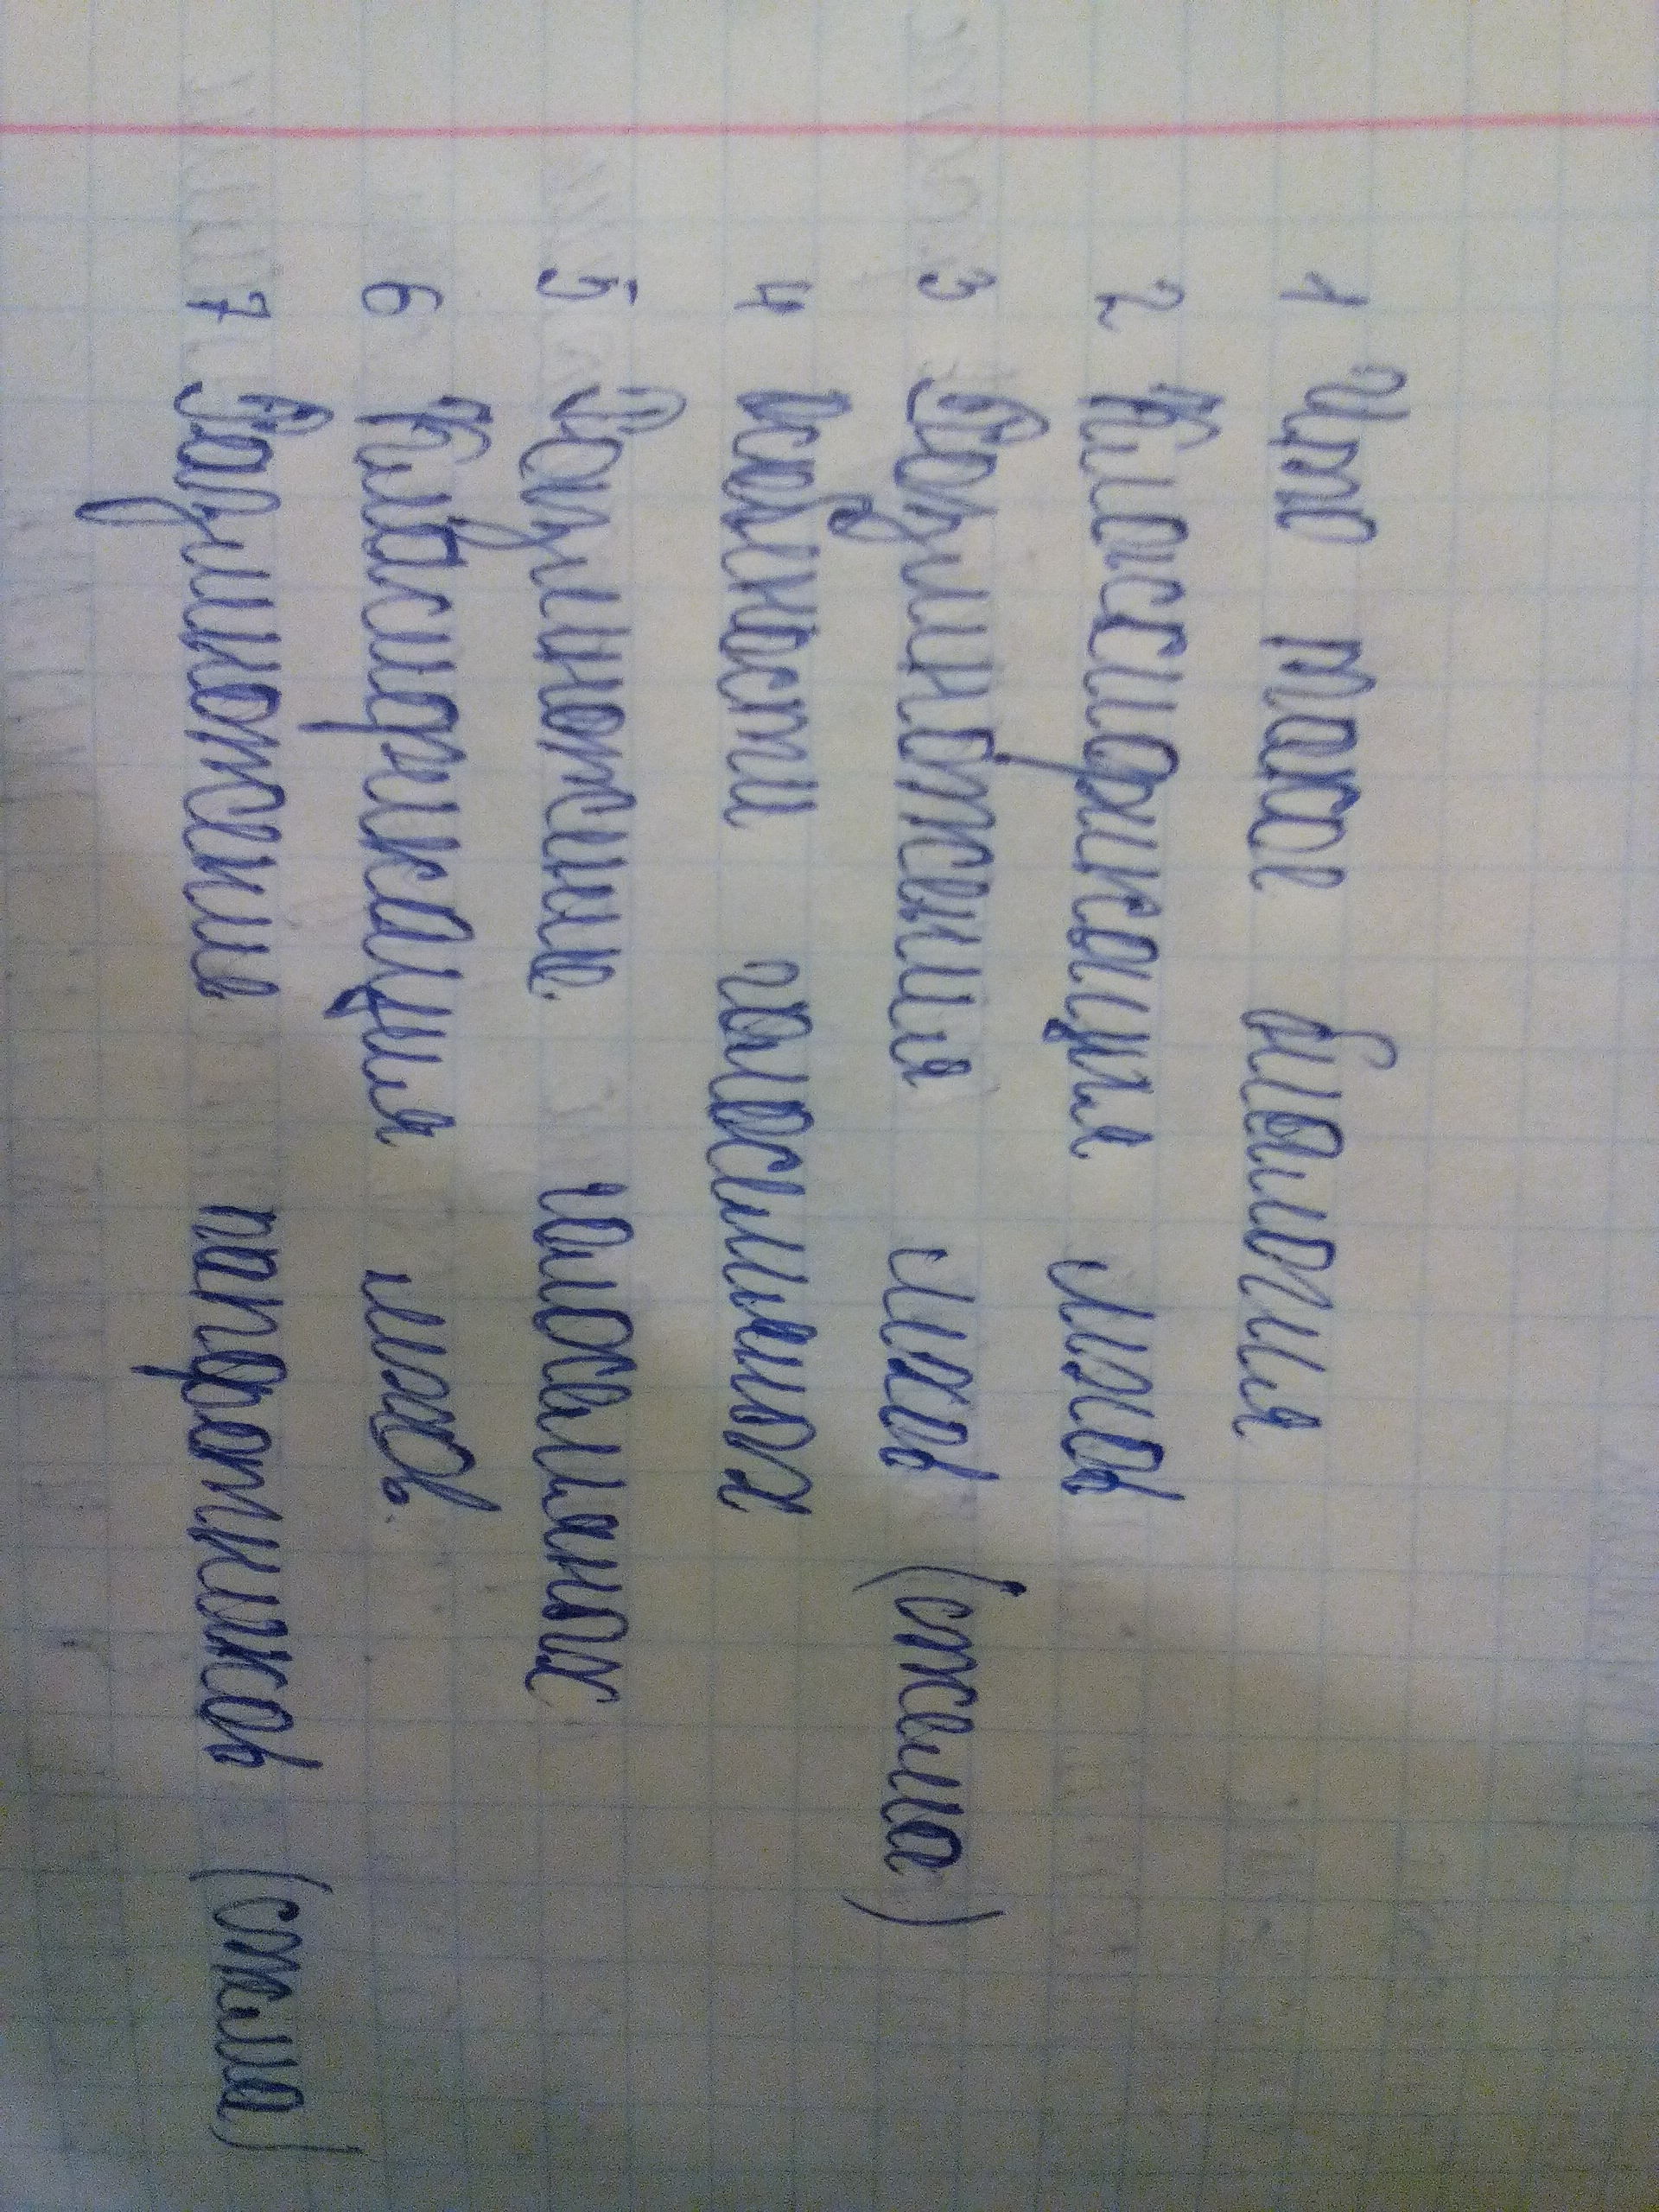 1 Что такое биология
2 Классификация мхов
3 Размножения мхов (схема)
4 Особеност голосемяных
5 Размножение голосемяных
6 Класификация мхов.
7 Размножение папоротников (схема)